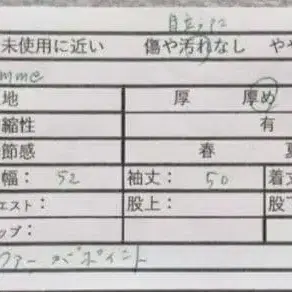 目立った
未使用に近い 傷や汚れなし やや
mme
地 厚 厚め
縮性 有
節感 春 夏
幅：52 袖丈：50 着丈
エスト： 股上： 股下
ップ：
ファーがポイント